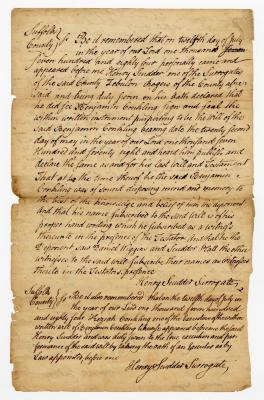 Suffolk
County } ss Be it remembered that on twelfth day of July
in the year of our Lord one thousand
Seven hundred and eighty four personally came and
appeared before me Henry Scudder one of the Surrogates
of the said County Zebulon Rogers of the County afore
Said and being duly sworn on his oath declared that
he did see Benjamin Conkling sign and seal the
within written instrument purporting to be the will of the
Said Benjamin Conkling bearing date the twenty second
day of may in the year of our Lord one thousand seven
hundred and seventy eight and heard him publish and
declare the same as and for his last will and Testament
That at the time thereof he the said Benjamin
Conkling was of sound disposing mind and memory to
the best of the knowledge and belief of him the deponent
and that his name subscribed to the said will is of his
proper hand writing which he subscribed as a witness
thereunto in the presence of the Testator and that he the
Deponent saw Daniel Wiggins and the other
witnesses to the said will subscribe their names as witnesses
thereto in the Testators presence
Henry Scudder Surrogate
Suffolk
County } ss Be it also remembered that on the twelfth day of July in
the year of our Lord one thousand seven hundred
and eighty four Conkling one of the Executors of the within
written will of Benjamin Conkling likewise appeared before me the said
Henry Scudder and was duly sworn to the true execution and per
formance of the said will by taking the oath of an Executor as by
Law appointed before me
Henry Scudder Surrogate